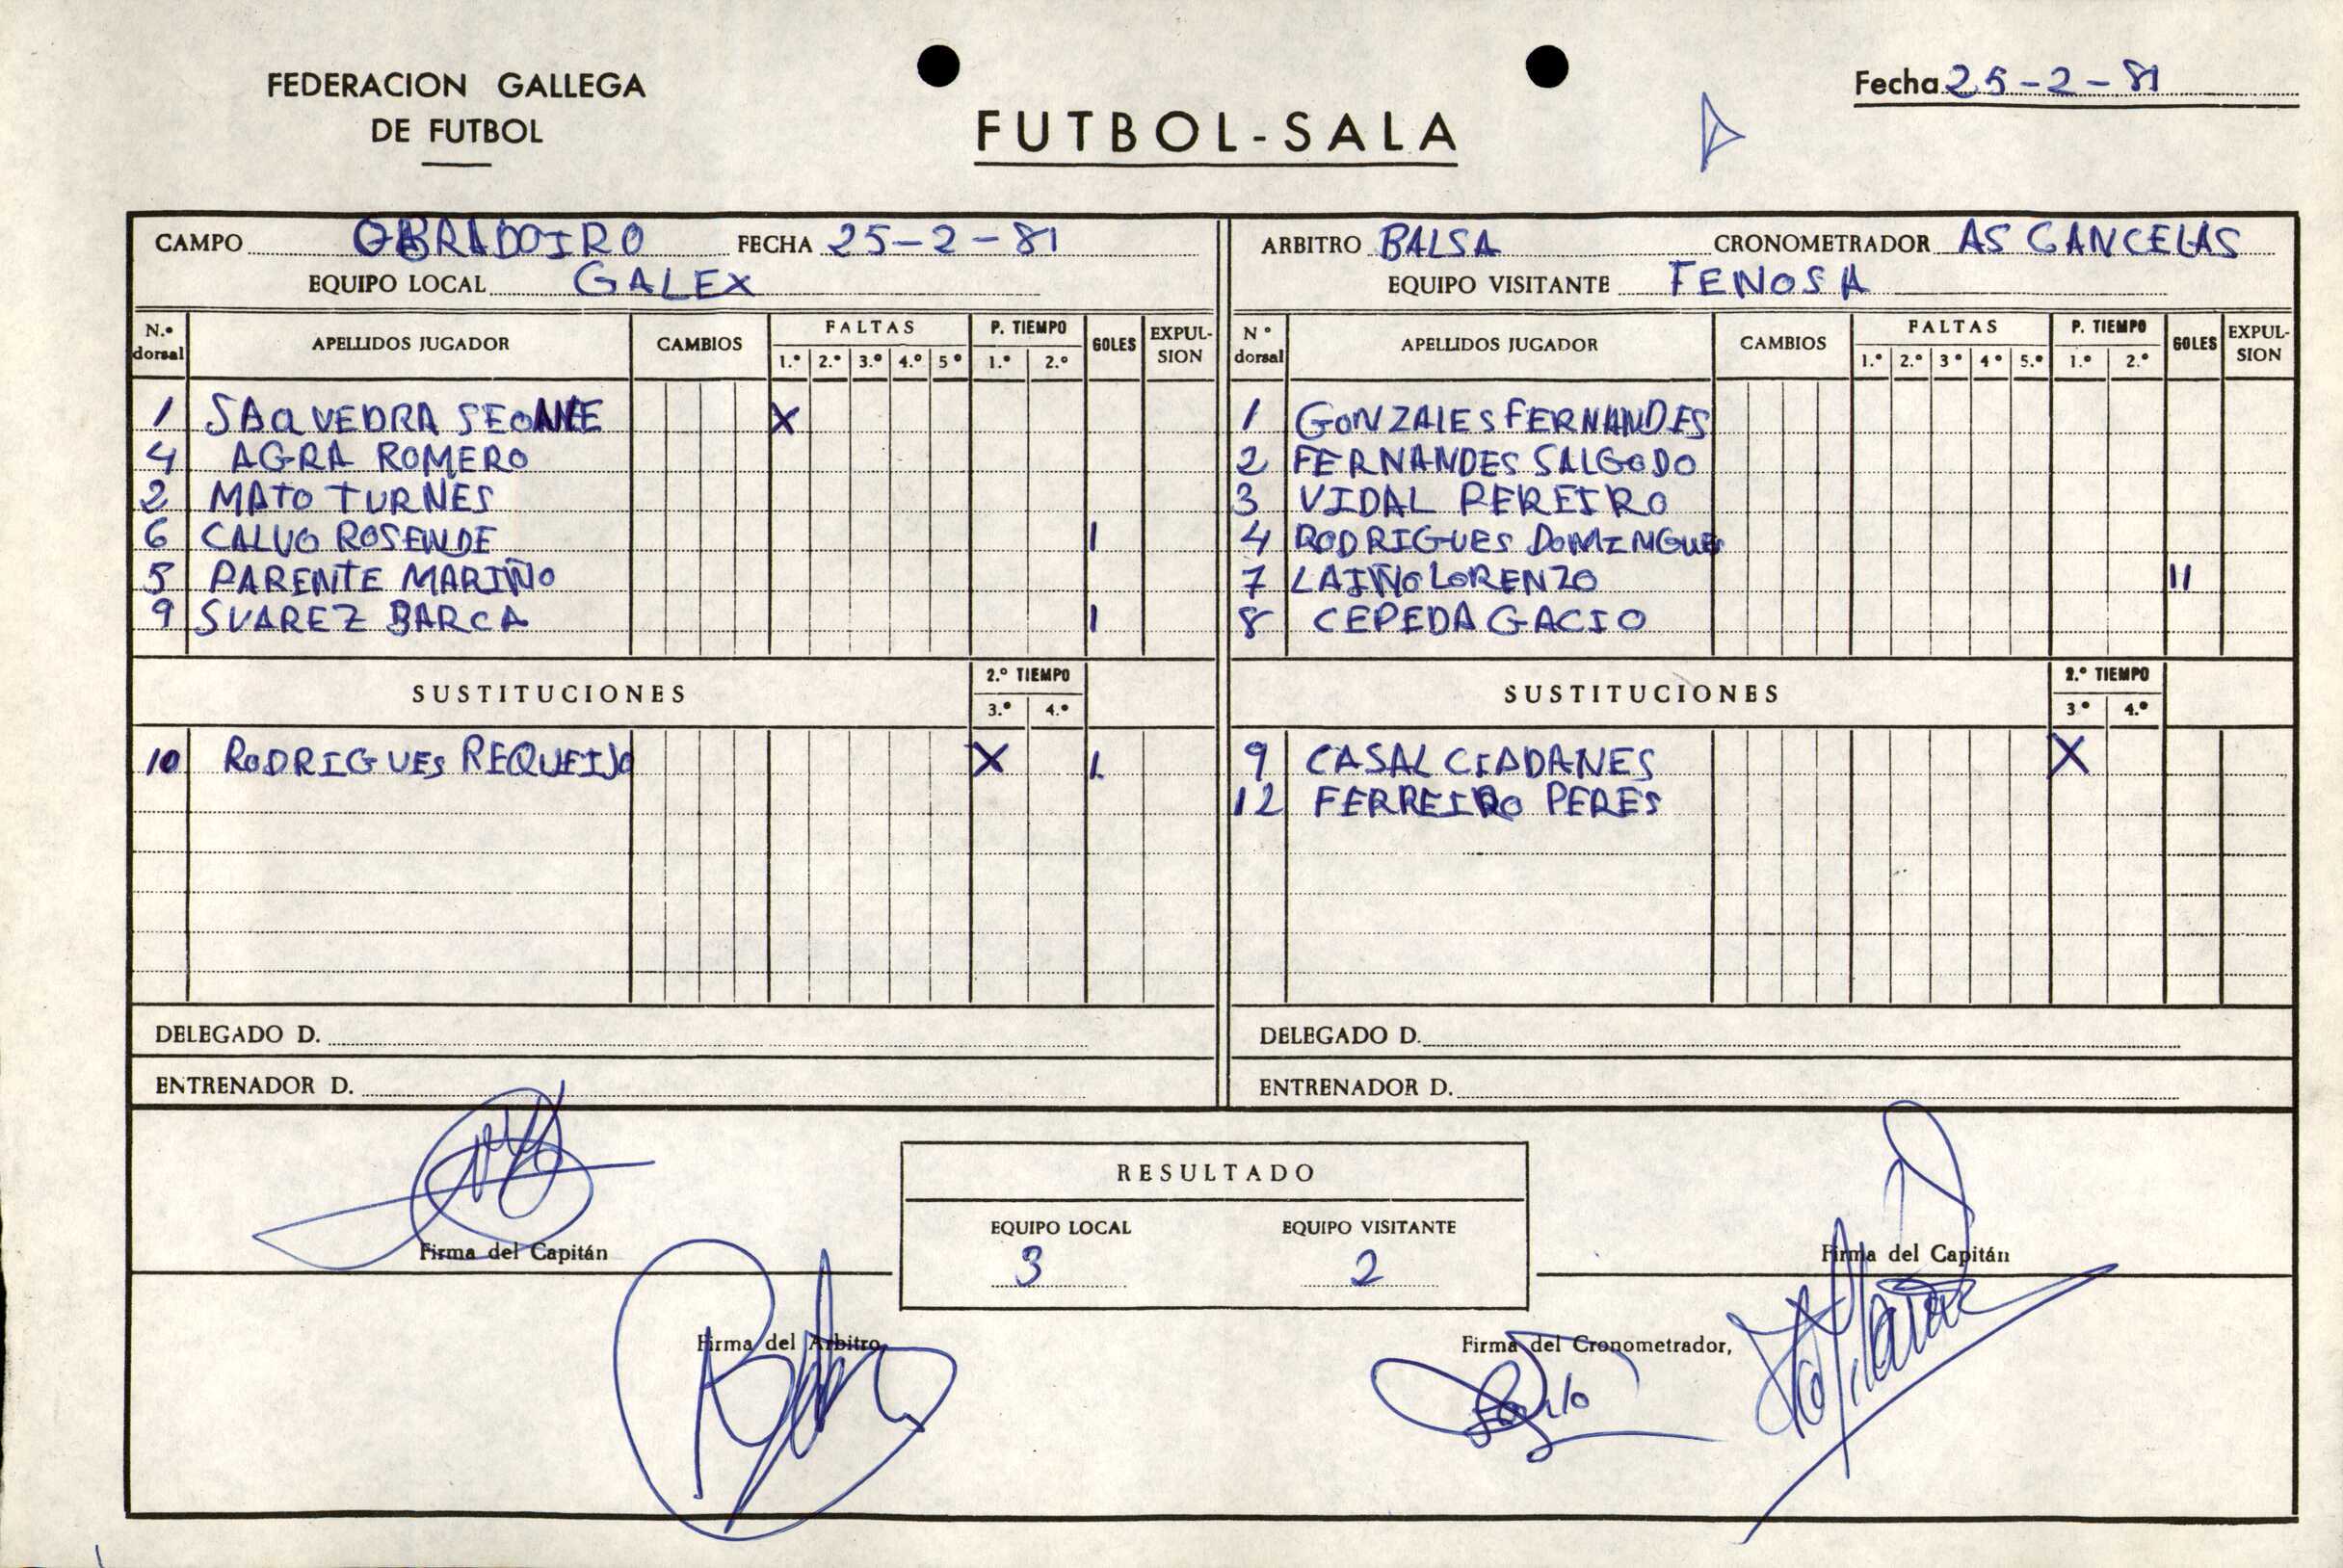 FEDERACION GALLEGA
DE FUTBOL
FUTBOL-SALA
Fecha 25-2-81
CAMPO OBRADOIRO FECHA 25-2-81
EQUIPO LOCAL GALEX
N.º dorsal APELLIDOS JUGADOR CAMBIOS FALTAS 1.º 2.º 3.º 4.º 5º P. TIEMPO 1.º 2.º GOLES EXPULSION
1 SAAVEDRA SEOANE X
4 AGRA ROMERO
2 MATO TURNES
6 CALVO ROSENDE 1
5 PARENTE MARIÑO
9 SUAREZ BARCA 1
SUSTITUCIONES 2.º TIEMPO 3.º 4.º
10 RODRIGUES REQUEIJO X 1
DELEGADO D.
ENTRENADOR D.
ARBITRO BALSA CRONOMETRADOR AS CANCELAS
EQUIPO VISITANTE FENOSA
Nº dorsal APELLIDOS JUGADOR CAMBIOS FALTAS 1.º 2.º 3º 4º 5.º P. TIEMPO 1.º 2.º GOLES EXPULSION
1 GONZALES FERNANDES
2 FERNANDES SALGODO
3 VIDAL PEREIRO
4 RODRIGUES DOMINGUES
7 LAIÑO LORENZO 11
8 CEPEDA GACIO
SUSTITUCIONES 2.º TIEMPO 3º 4.º
9 CASAL CIADANES X
12 FERREIRO PERES
DELEGADO D.
ENTRENADOR D.
RESULTADO
EQUIPO LOCAL EQUIPO VISITANTE
3 2
Firma del Capitán
Firma del Capitán
Firma del Arbitro
Firma del Cronometrador,